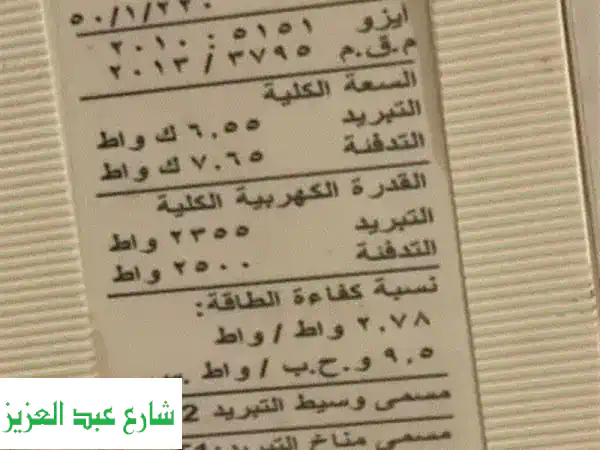 ٢٢٠/١/٥٠
أيزو ٥١٥١ : ٢٠١٠
م.ق.م ٣٧٩٥ / ٢٠١٣
السعة الكلية
التبريد ٦,٥٥ ك واط
التدفئة ٧,٦٥ ك واط
القدرة الكهربية الكلية
التبريد ٢٣٥٥ واط
التدفئة ٢٥٠٠ واط
نسبة كفاءة الطاقة:
٢,٧٨ واط / واط
٩,٥ و.ح.ب / واط
مسمى وسيط التبريد
مسمى مناخ التبريد:
شارع عبد العزيز